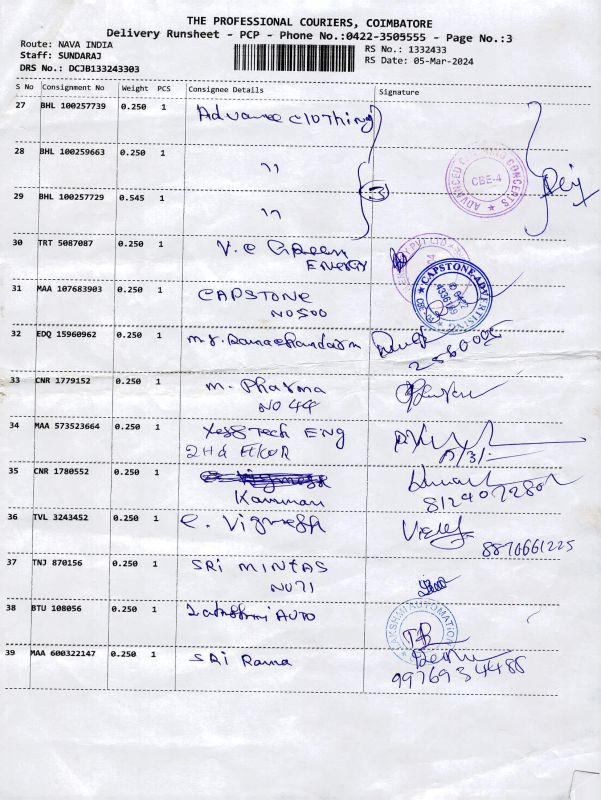 THE PROFESSIONAL COURIERS, COIMBATORE
Delivery Runsheet - PCP - Phone No.:0422-3505555 - Page No.:3
Route: NAVA INDIA
RS No.: 1332433
Staff: SUNDARAJ
RS Date: 05-Mar-2024
DRS No.: DCJB133243303
S No Consignment No Weight PCS Consignee Details Signature
27 BHL 100257739 0.250 1 Advance clothing
28 BHL 100259663 0.250 1 "
ADVANCED CONCEPTS CBE-4
29 BHL 100257729 0.545 1 "
30 TRT 5087087 0.250 1 V.C Green
ENERGY
PVT LTD
31 MAA 107683903 0.250 1 CAPSTONE
NO 500
CAPSTONE ADVERTISING
32 EDQ 15960962 0.250 1 M.S. Ramachandram
33 CNR 1779152 0.250 1 M. Pharma
NO 44
34 MAA 573523664 0.250 1 Tech ENG
2nd FLOOR
35 CNR 1780552 0.250 1
Kannan
36 TVL 3243452 0.250 1 C. Vignesh
8870661225
37 TNJ 870156 0.250 1 SRI MINTAS
NO 71
38 BTU 108056 0.250 1 Lakshmi AUTO
LAKSHMI AUTOMATION
39 MAA 600322147 0.250 1 SRI Rama
9976934488